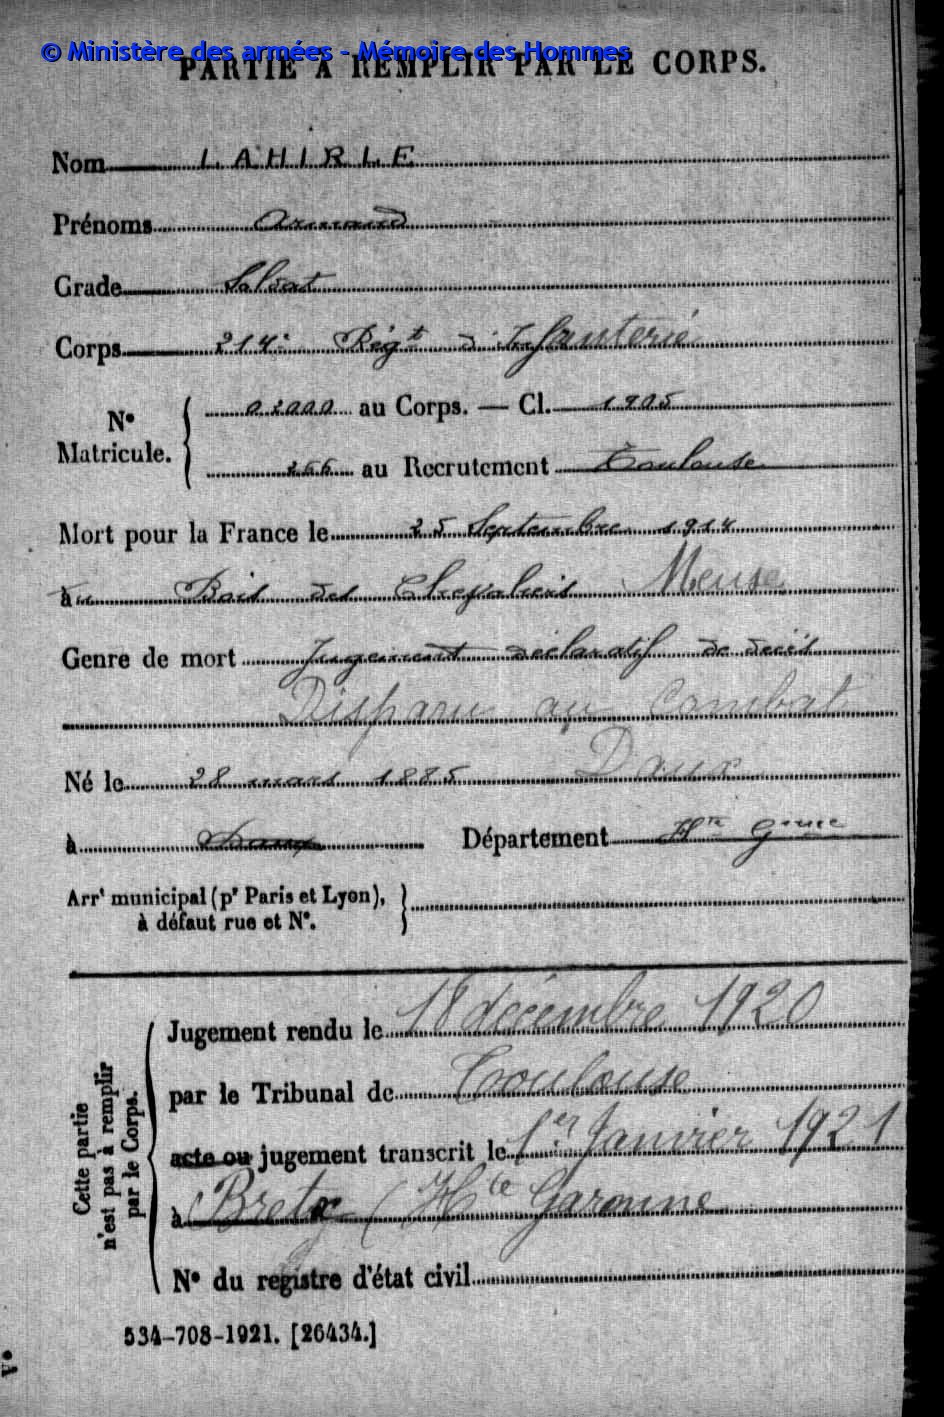 © Ministère des armées - Mémoire des Hommes
PARTIE À REMPLIR PAR LE CORPS.
Nom LAHIRLE
Prénoms Armand
Grade Soldat
Corps 214e Régt d'Infanterie
No Matricule. 02000 au Corps. — Cl. 1905
266 au Recrutement Toulouse
Mort pour la France le 25 Septembre 1914
au Bois des Chevaliers Meuse
Genre de mort Jugement déclaratif de décès
Disparu au Combat
Né le 28 mars 1885 Daux
à Département Hte Gnne
Arrt municipal (pr Paris et Lyon),
à défaut rue et No.
Cette partie n'est pas à remplir par le Corps.
Jugement rendu le 18 décembre 1920
par le Tribunal de Toulouse
acte ou jugement transcrit le 1er Janvier 1921
à Bretx (Hte Garonne
No du registre d'état civil
534-708-1921. [26434.]